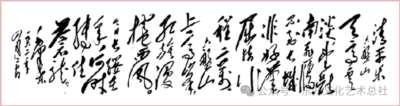 清平乐
六盘山
天高云
淡望断
南飞雁
不到长城
非好汉
屈指行
程二万
六盘山
上高峰
红旗漫
卷西风
今日长缨
在手何时
缚住
苍龙
毛泽东
公众号
化艺术总社